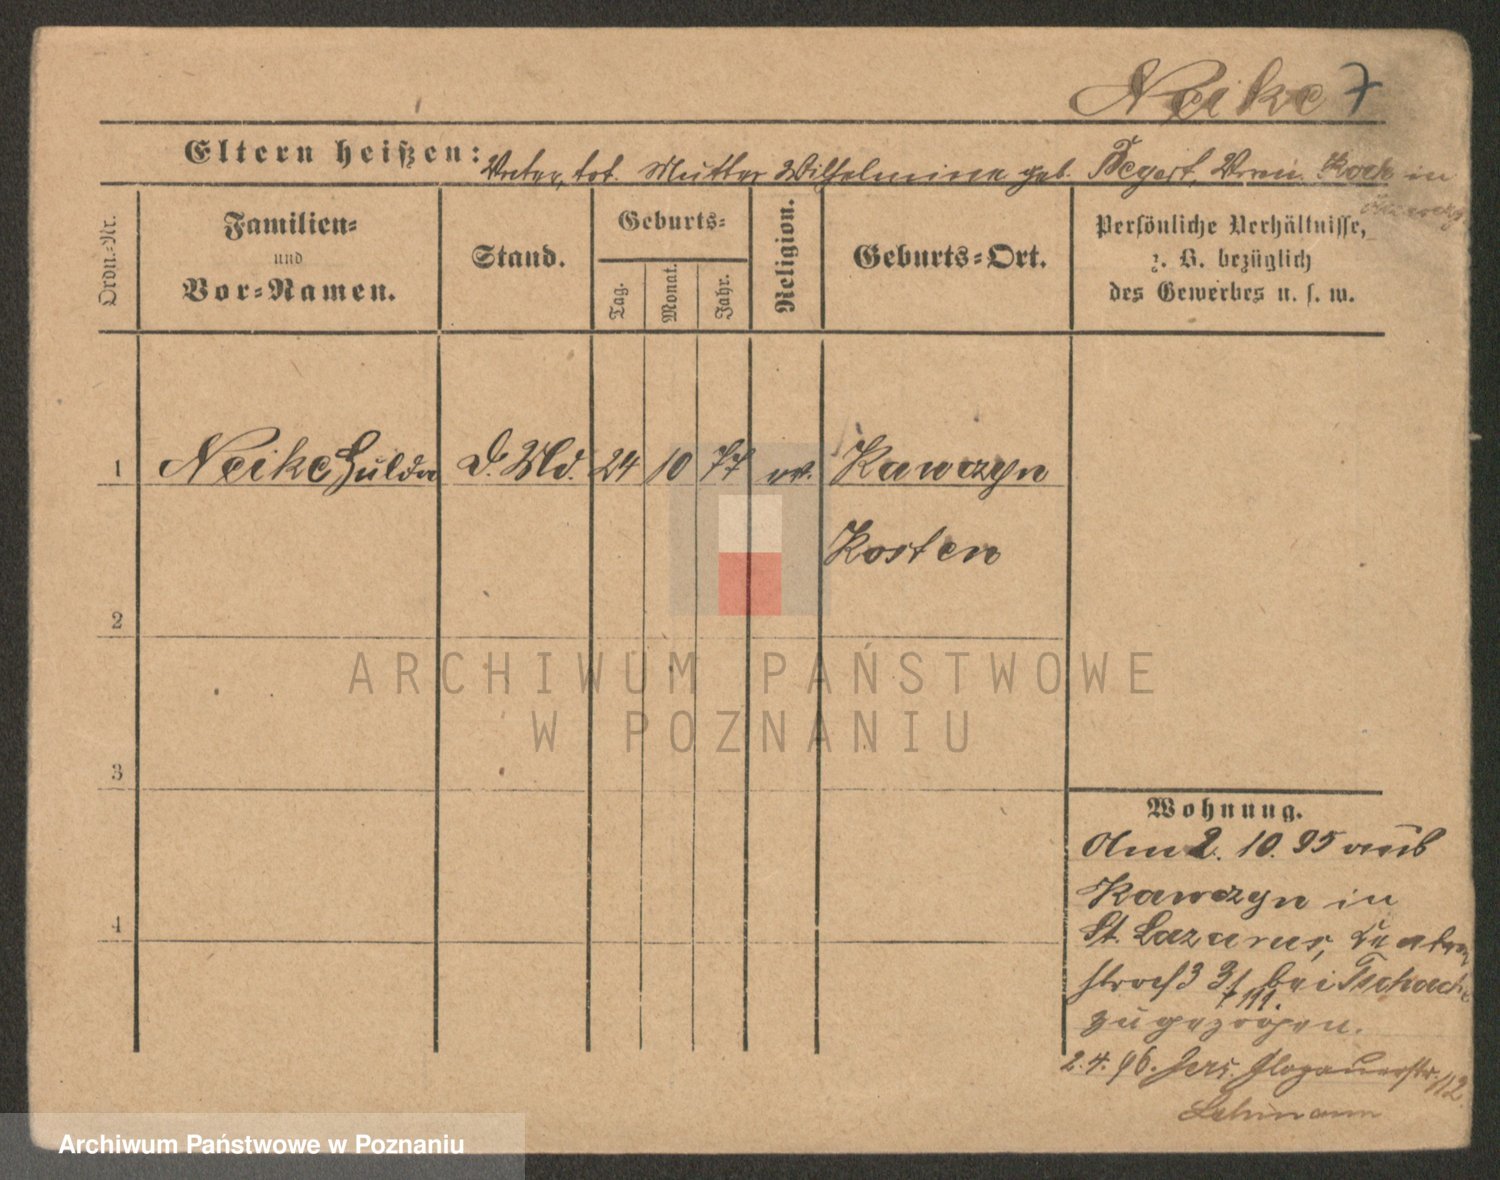 Neike 7
Eltern heißen: Vater tot. Mutter Wilhelmine geb. Begert, Koch in
Ordn.-Nr.
Familien-
und
Vor-Namen.
Stand.
Geburts-
Tag.
Monat.
Jahr.
Religion.
Geburts-Ort.
Persönliche Verhältnisse,
z. B. bezüglich
des Gewerbes u. s. w.
1 Neike, Hulda D. Md. 24 10 77 ev. Kawczyn
Kosten
2
3
4
ARCHIWUM PAŃSTWOWE
W POZNANIU
Wohnung.
Am 2. 10. 95 aus
Kawczyn in
St. Lazarus,
31 bei
zugezogen.
2. 4. 96. Jers. Glogauerstr. 112
Lehmann
Archiwum Państwowe w Poznaniu